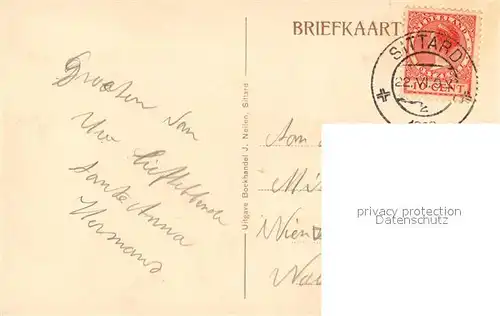 BRIEFKAART
NEDERLAND
10 CENT
SITTARD
22.VI
Groeten van
Uw liefhebbende
tante Anna
Hermans
Uitgave Boekhandel J. Nelien, Sittard
Aan
privacy protection
Datenschutz